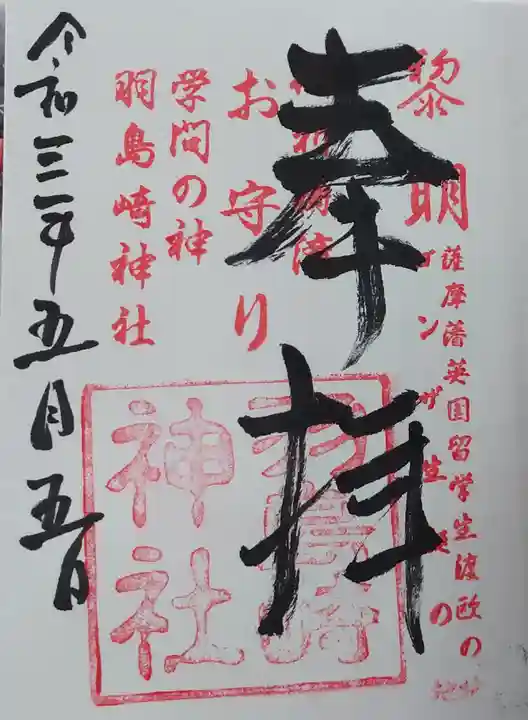 奉拝
黎明
薩摩藩英国留学生渡欧の地
ゴンザ生誕の地
お守り
学問の神
羽島崎神社
羽島崎
神社
令和三年五月五日